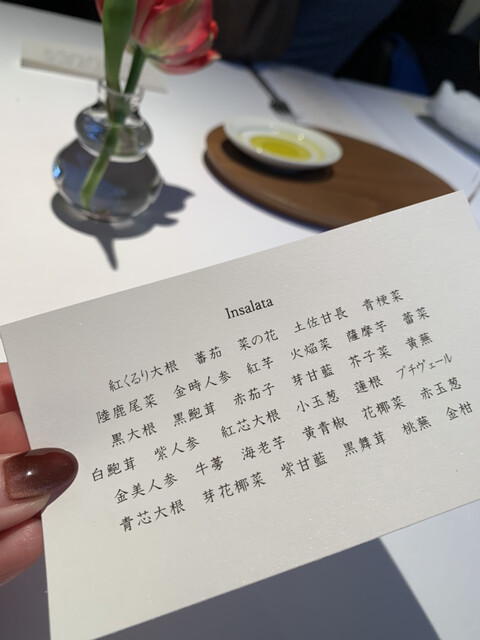 Insalata
紅くるり大根 蕃茄 菜の花 土佐甘長 青梗菜
陸鹿尾菜 金時人参 紅芋 火焔菜 薩摩芋 蕾菜
黒大根 黒鮑茸 赤茄子 芽甘藍 芥子菜 黄蕪
白鮑茸 紫人参 紅芯大根 小玉葱 蓮根 プチヴェール
金美人参 牛蒡 海老芋 黄青椒 花椰菜 赤玉葱
青芯大根 芽花椰菜 紫甘藍 黒舞茸 桃蕪 金柑